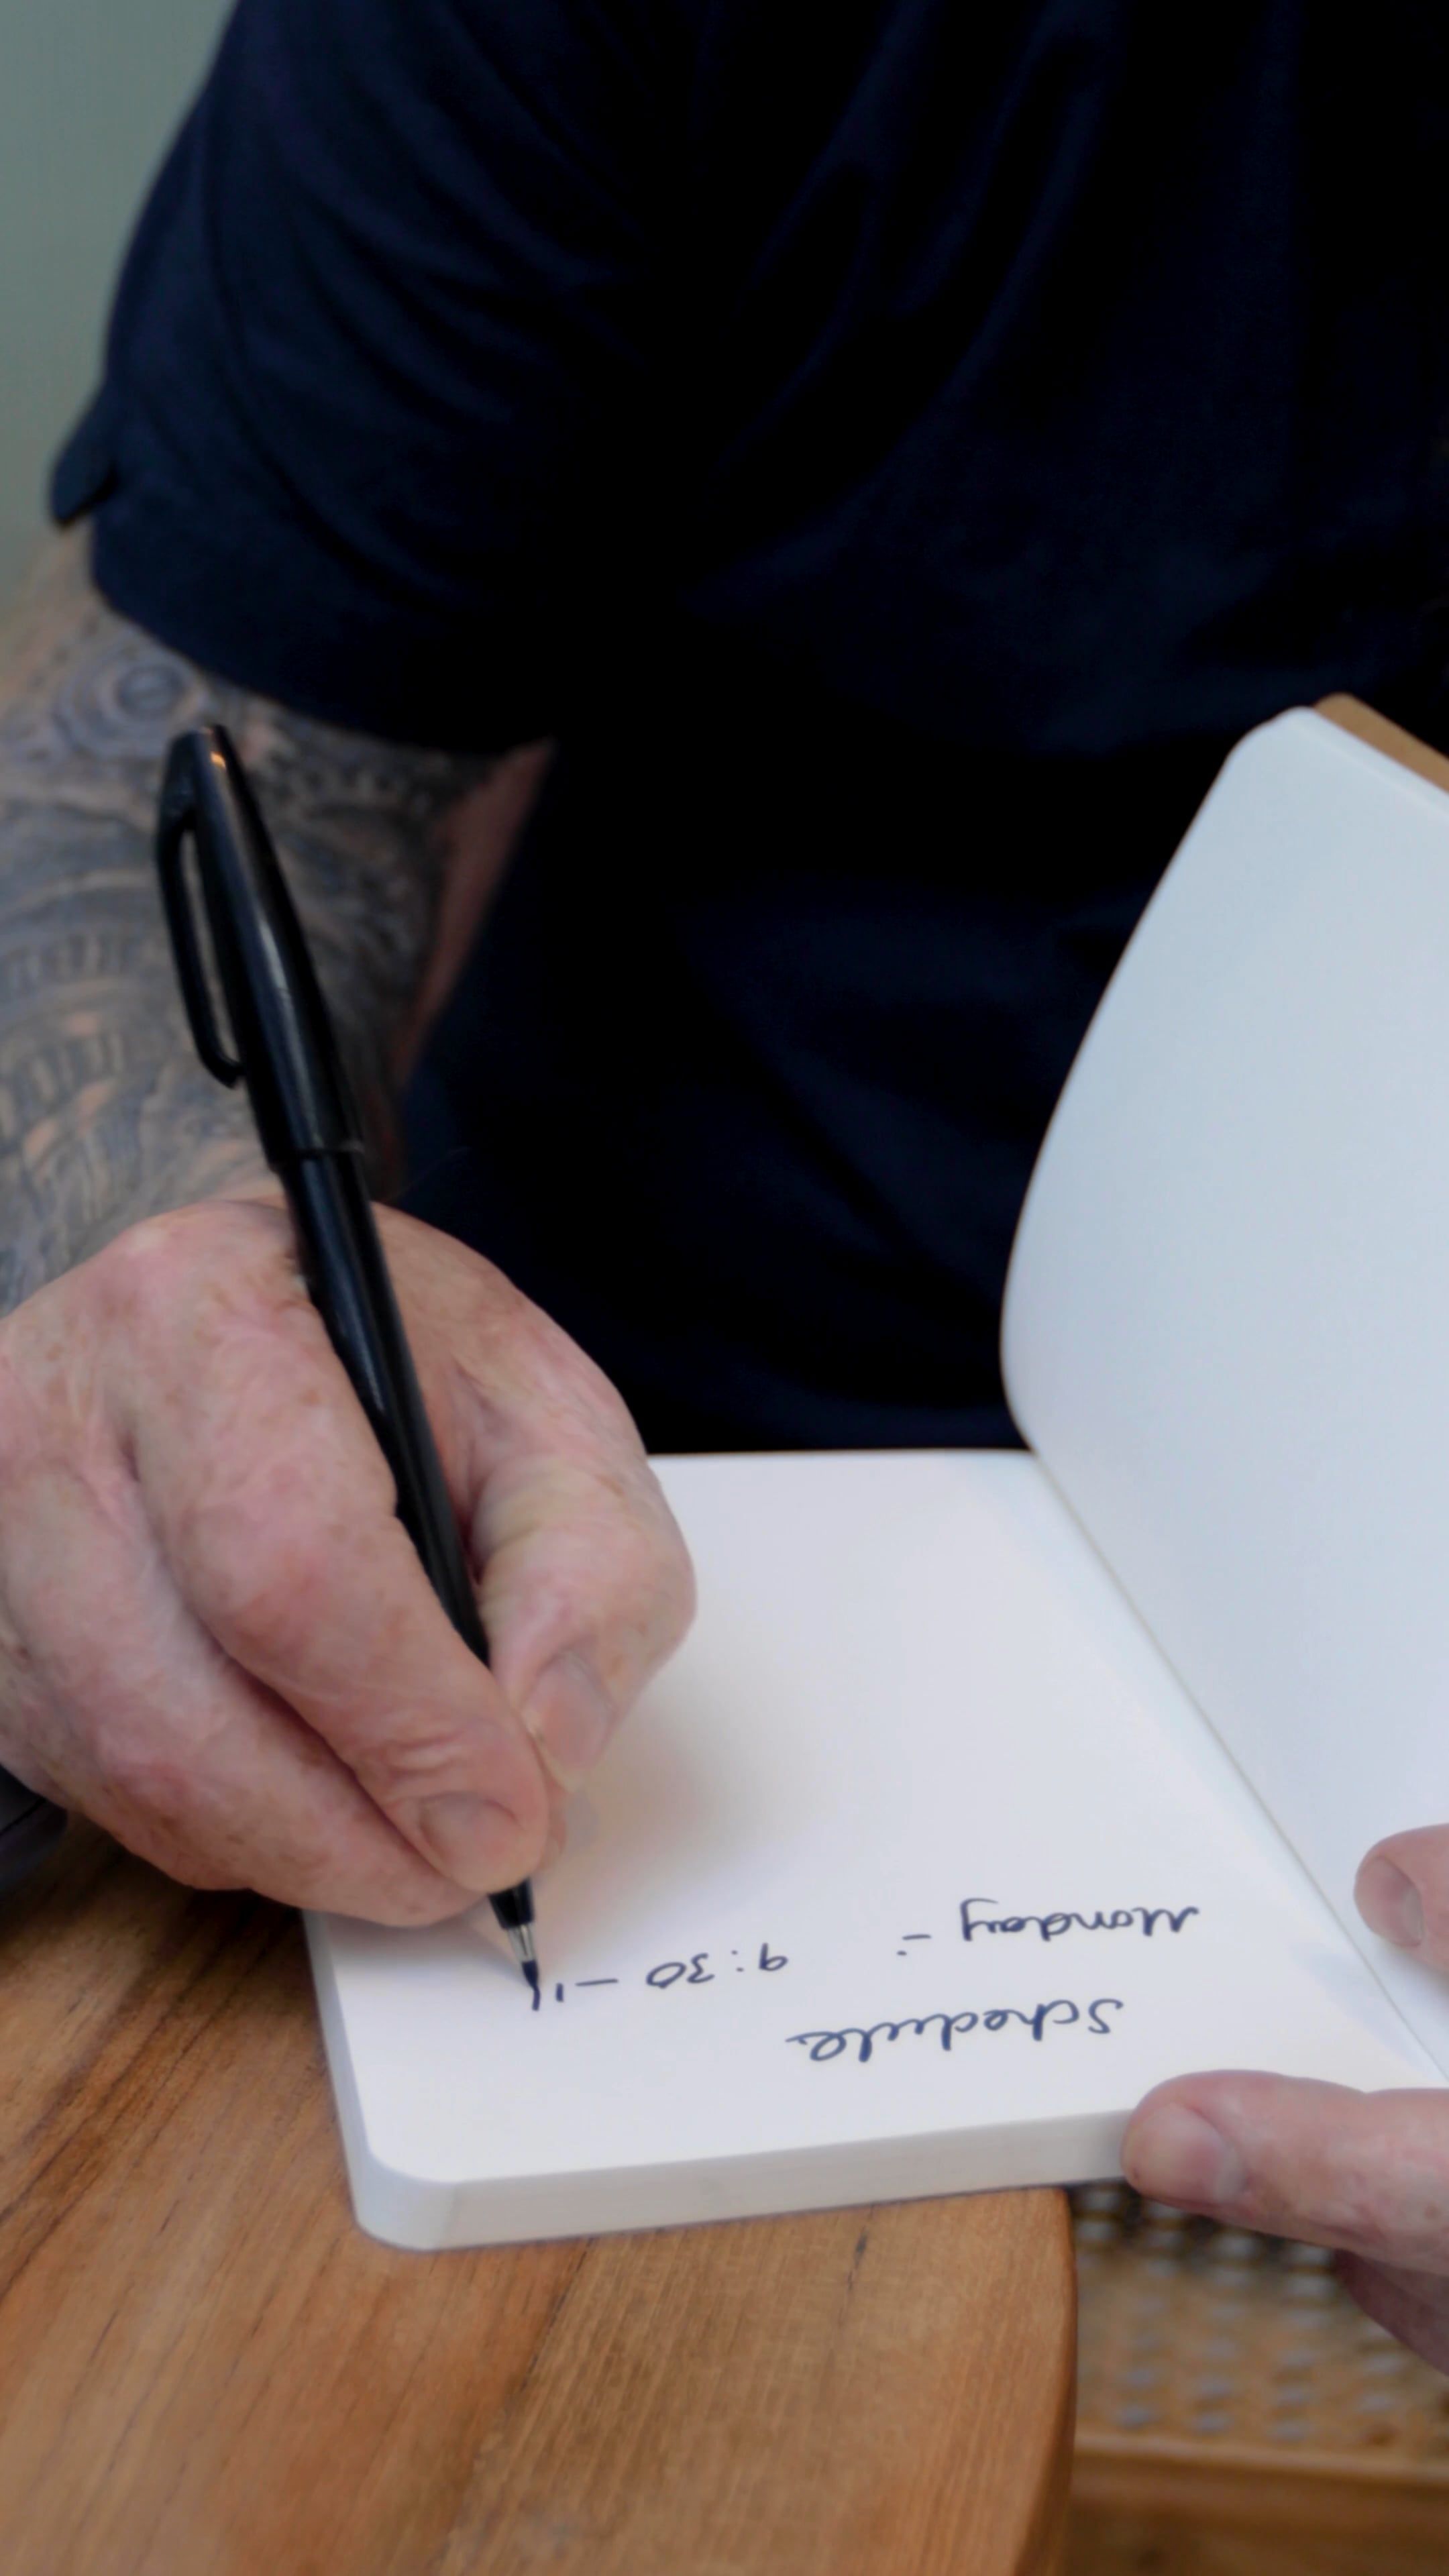 Schedule
Monday :- 9:30 - 11